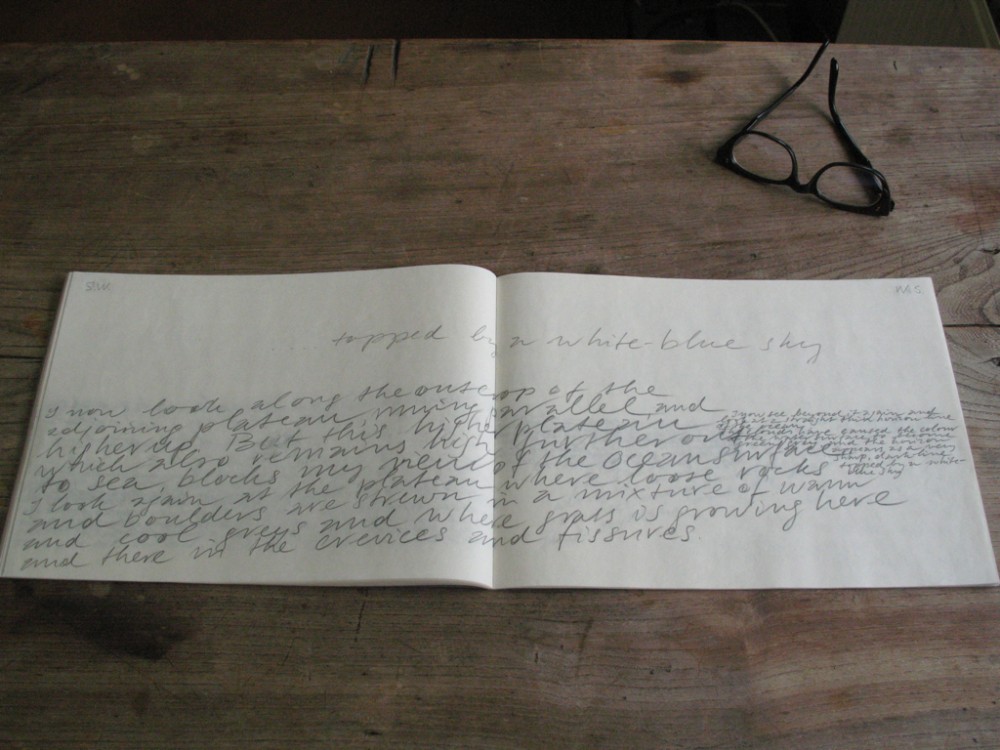 S.W.
N.S.
topped by a white-blue sky
I now look along the outcrop of the
adjoining plateau, running parallel and
higher up. But this higher plateau
which also remains high further out
to sea blocks my view of the ocean surface
I look again at the plateau where loose rocks
and boulders are strewn in a mixture of warm
and cool greys and where grass is growing here
and there in the crevices and fissures.
I now see, beyond it a
the colour
the horizon
appears as a
topped by a white-
blue sky